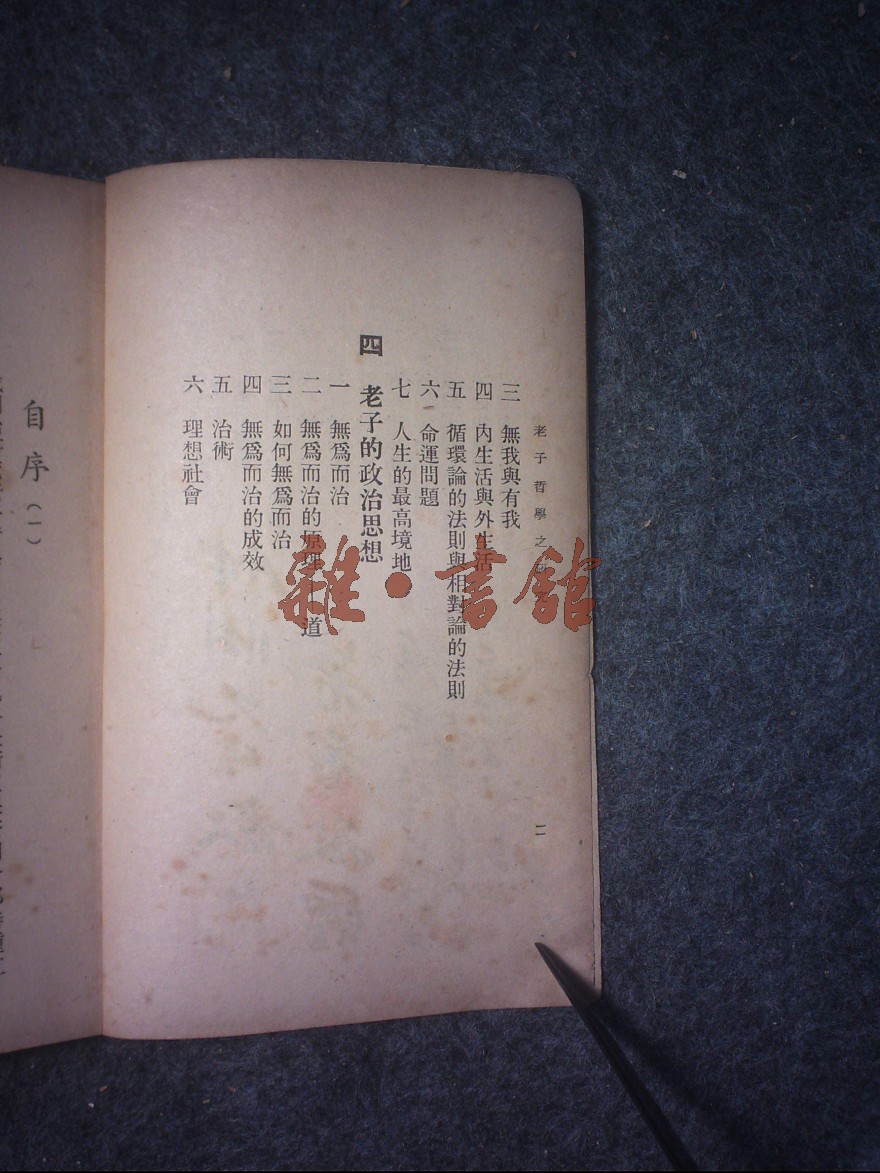 老子哲學之
三 無我與有我
四 內生活與外生活
五 循環論的法則與相對論的法則
六 命運問題
七 人生的最高境地
四 老子的政治思想
一 無爲而治
二 無爲而治的原理—道
三 如何無爲而治
四 無爲而治的成效
五 治術
六 理想社會
二
自序（一）
雜·書館